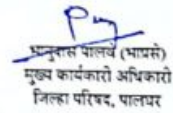 भानुदास पालवे (भाप्रसे)
मुख्य कार्यकारी अधिकारी
जिल्हा परिषद, पालघर